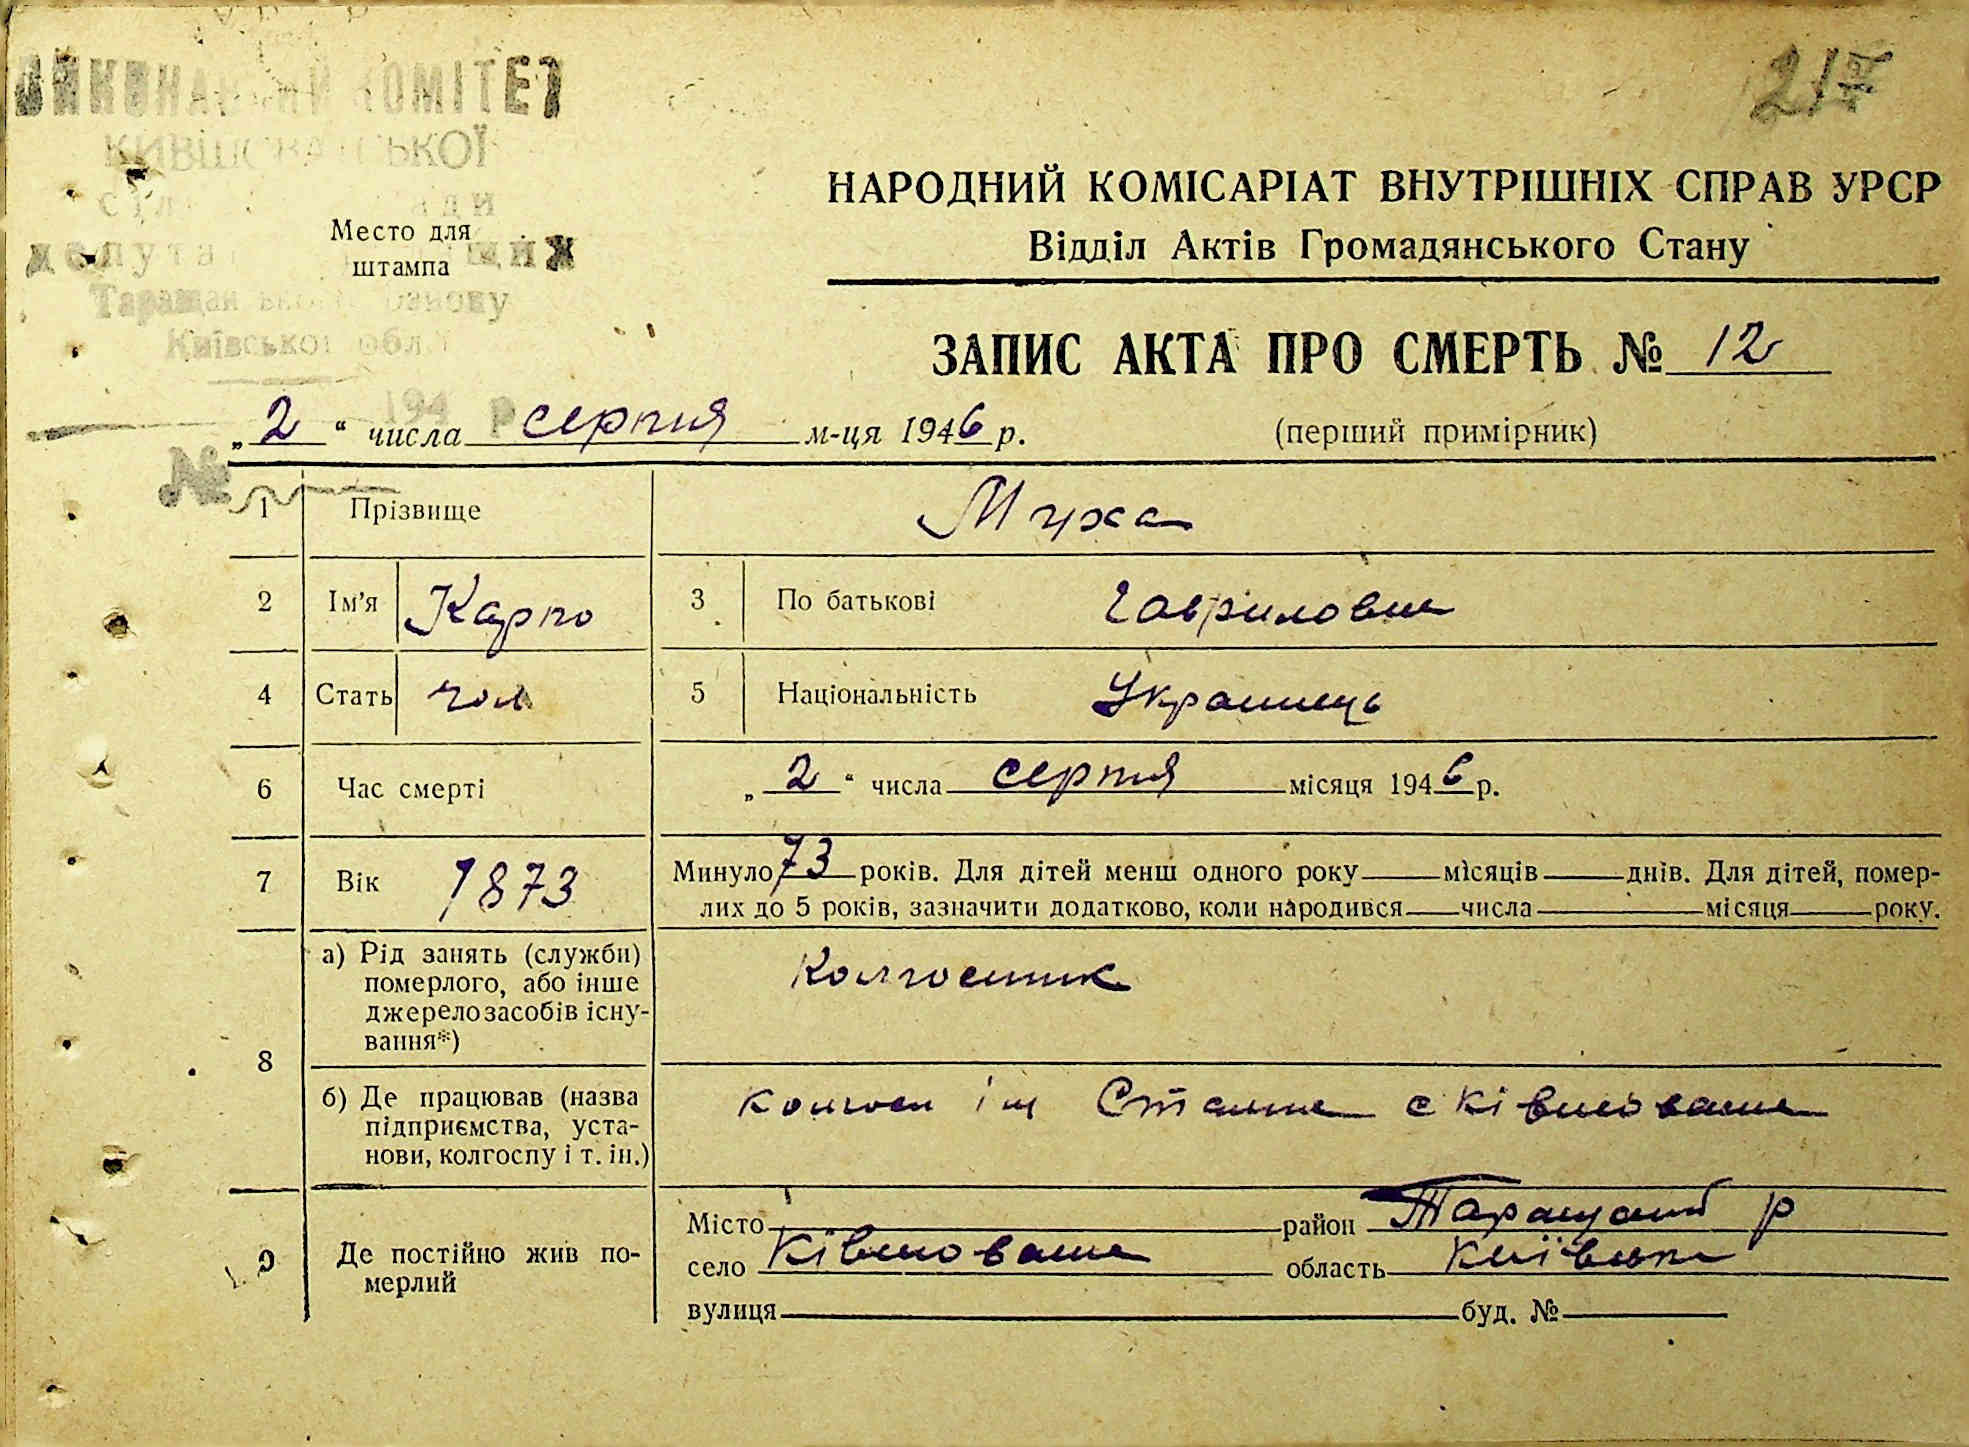 ВИКОНАВЧИЙ КОМІТЕТ
КИВШОВАТСЬКОЇ
217
НАРОДНИЙ КОМІСАРІАТ ВНУТРІШНІХ СПРАВ УРСР
Відділ Актів Громадянського Стану
Место для
штампа
Київської обл
ЗАПИС АКТА ПРО СМЕРТЬ № 12
194 р
„2“ числа серпня м-ця 1946 р.
(перший примірник)
№
1 Прізвище Муха
2 Ім'я Карпо 3 По батькові Гаврилович
4 Стать чол 5 Національність Украинець
6 Час смерті „2“ числа серпня місяця 1946 р.
7 Вік 1873 Минуло 73 років. Для дітей менш одного року місяців днів. Для дітей, помер-
лих до 5 років, зазначити додатково, коли народився числа місяця року.
8 а) Рід занять (служби)
померлого, або інше
джерело засобів існу-
вання*)
Колгоспник
б) Де працював (назва
підприємства, уста-
нови, колгоспу і т. ін.)
колгосп ім Сталина с Ківшовата
9 Де постійно жив по-
мерлий
Місто район Таращанский р
село Ківшовата область Київська
вулиця буд. №